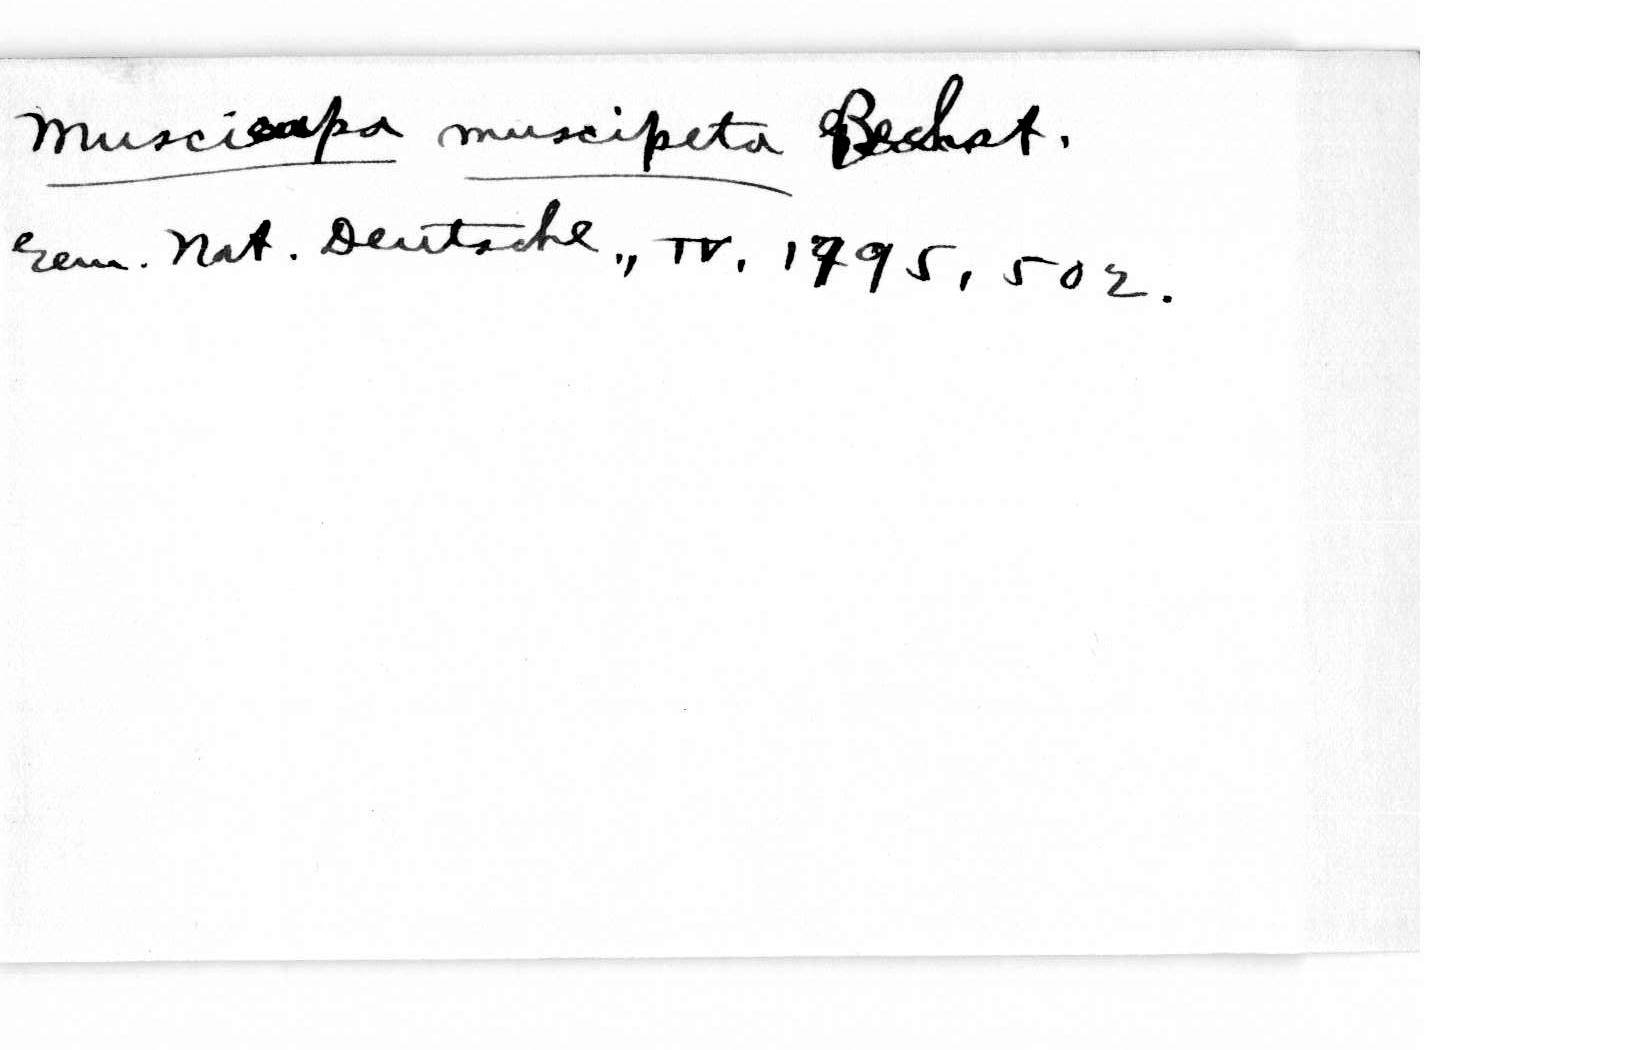 Muscicapa muscipeta Bechst.
Gem. Nat. Deutschl., IV, 1795, 502.